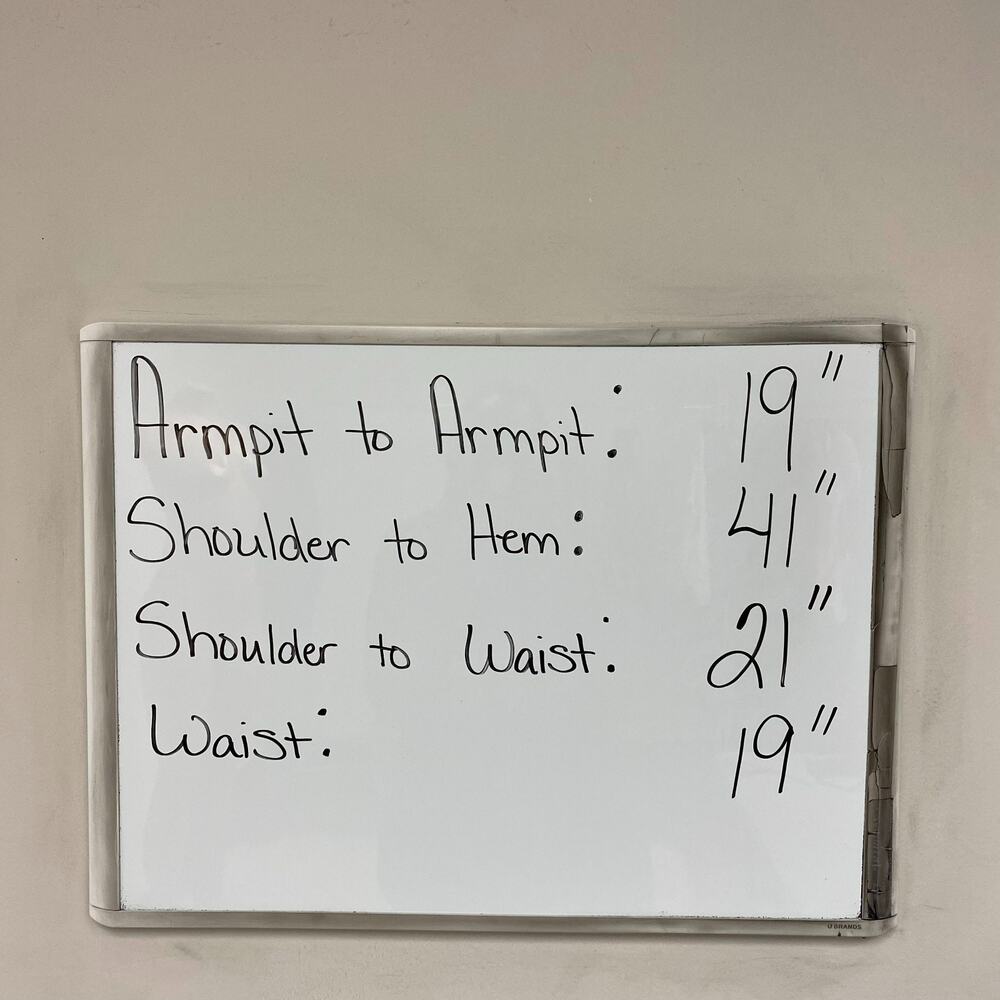 Armpit to Armpit: 19"
Shoulder to Hem: 41"
Shoulder to Waist: 21"
Waist: 19"
U BRANDS